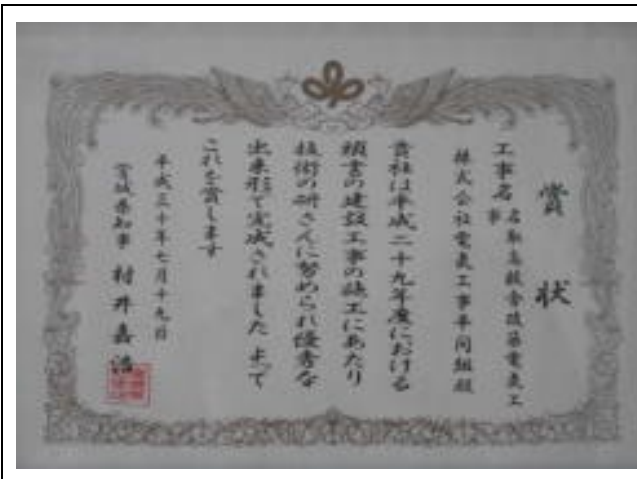 賞状
工事名 名取高校舎改築電気工
事
株式会社電気工事共同組殿
貴社は平成二十九年度における
頭書の建設工事の施工にあたり
技術の研さんに努められ優秀な
出来形で完成されました よって
これを賞します
平成三十年七月十九日
宮城県知事 村井嘉浩